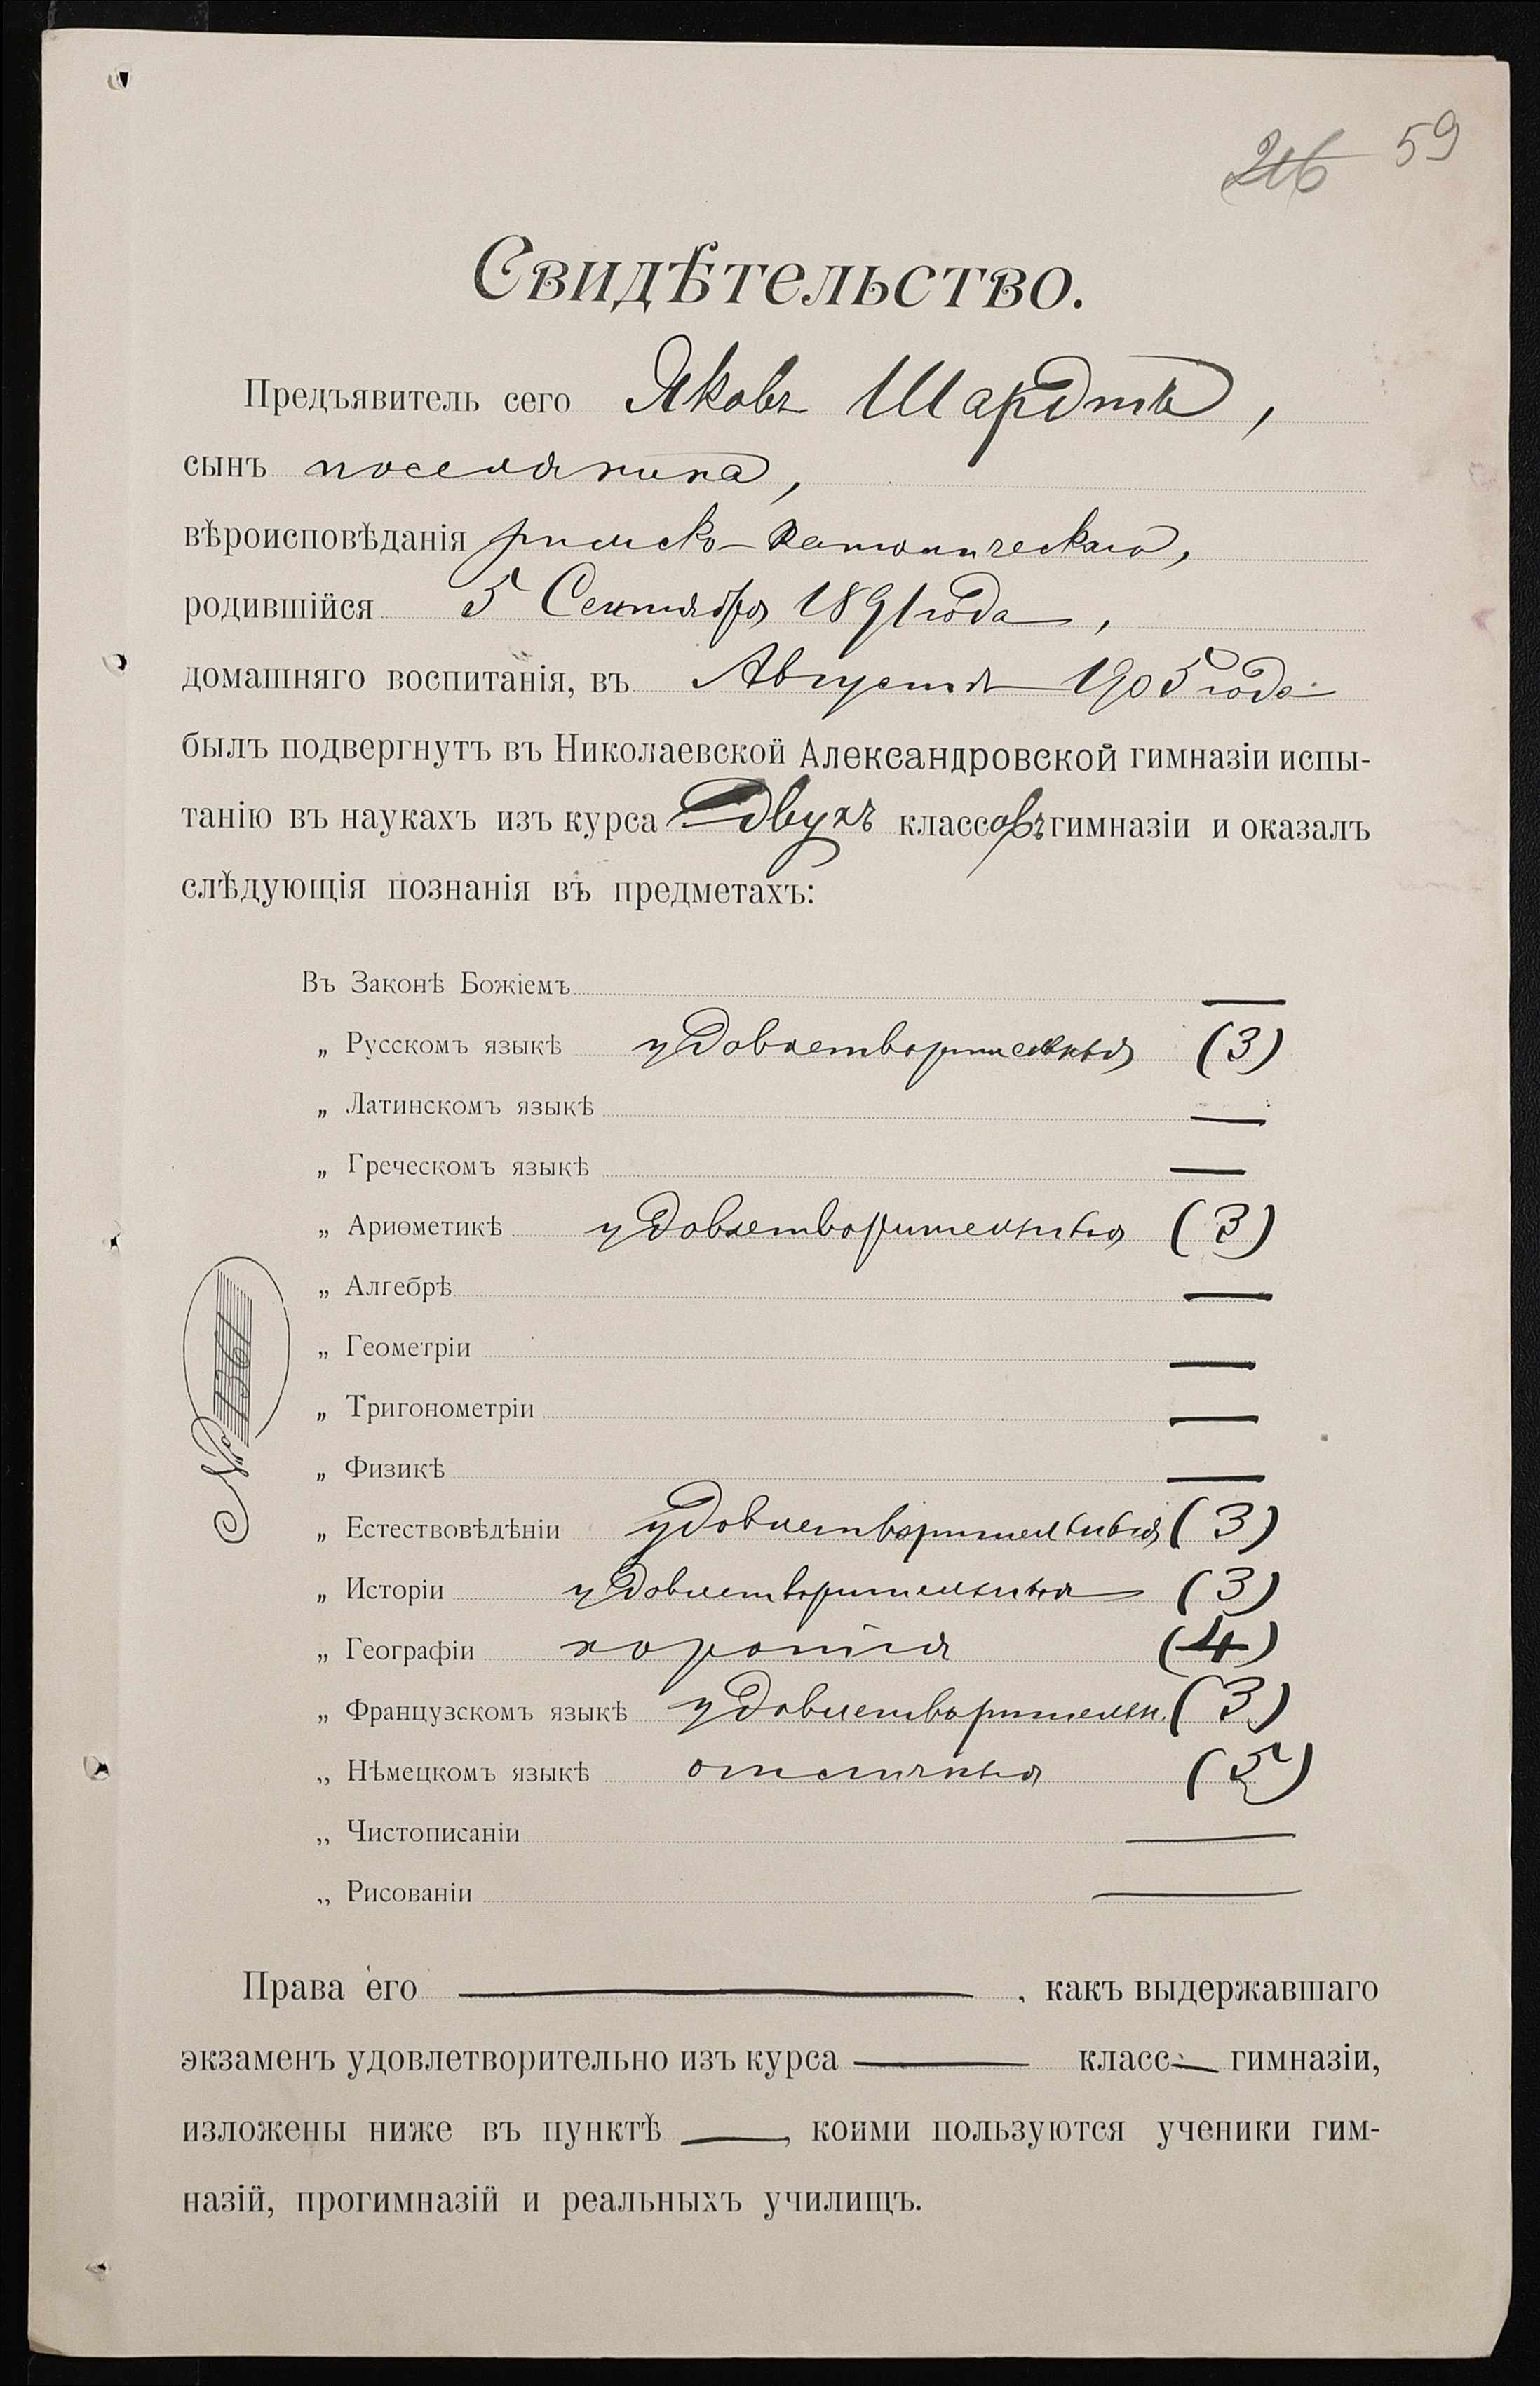 59
Свидѣтельство.
Предъявитель сего Яковъ Шардтъ,
сынъ поселянина,
вѣроисповѣданія римско-католическаго,
родившійся 5 Сентября 1891 года,
домашняго воспитанія, въ Августѣ 1905 года
былъ подвергнутъ въ Николаевской Александровской гимназіи испы-
танію въ наукахъ изъ курса двухъ классовъ гимназіи и оказалъ
слѣдующія познанія въ предметахъ:
Въ Законѣ Божіемъ —
„ Русскомъ языкѣ удовлетворительныя (3)
„ Латинскомъ языкѣ —
„ Греческомъ языкѣ —
„ Ариѳметикѣ удовлетворительныя (3)
„ Алгебрѣ —
„ Геометріи —
„ Тригонометріи —
„ Физикѣ —
„ Естествовѣдѣніи удовлетворительныя (3)
„ Исторіи удовлетворительныя (3)
„ Географіи хорошія (4)
„ Французскомъ языкѣ удовлетворительн. (3)
„ Нѣмецкомъ языкѣ отличныя (5)
„ Чистописаніи —
„ Рисованіи —
№ 1361
Права его — , какъ выдержавшаго
экзаменъ удовлетворительно изъ курса — класс— гимназіи,
изложены ниже въ пунктѣ —, коими пользуются ученики гим-
назій, прогимназій и реальныхъ училищъ.